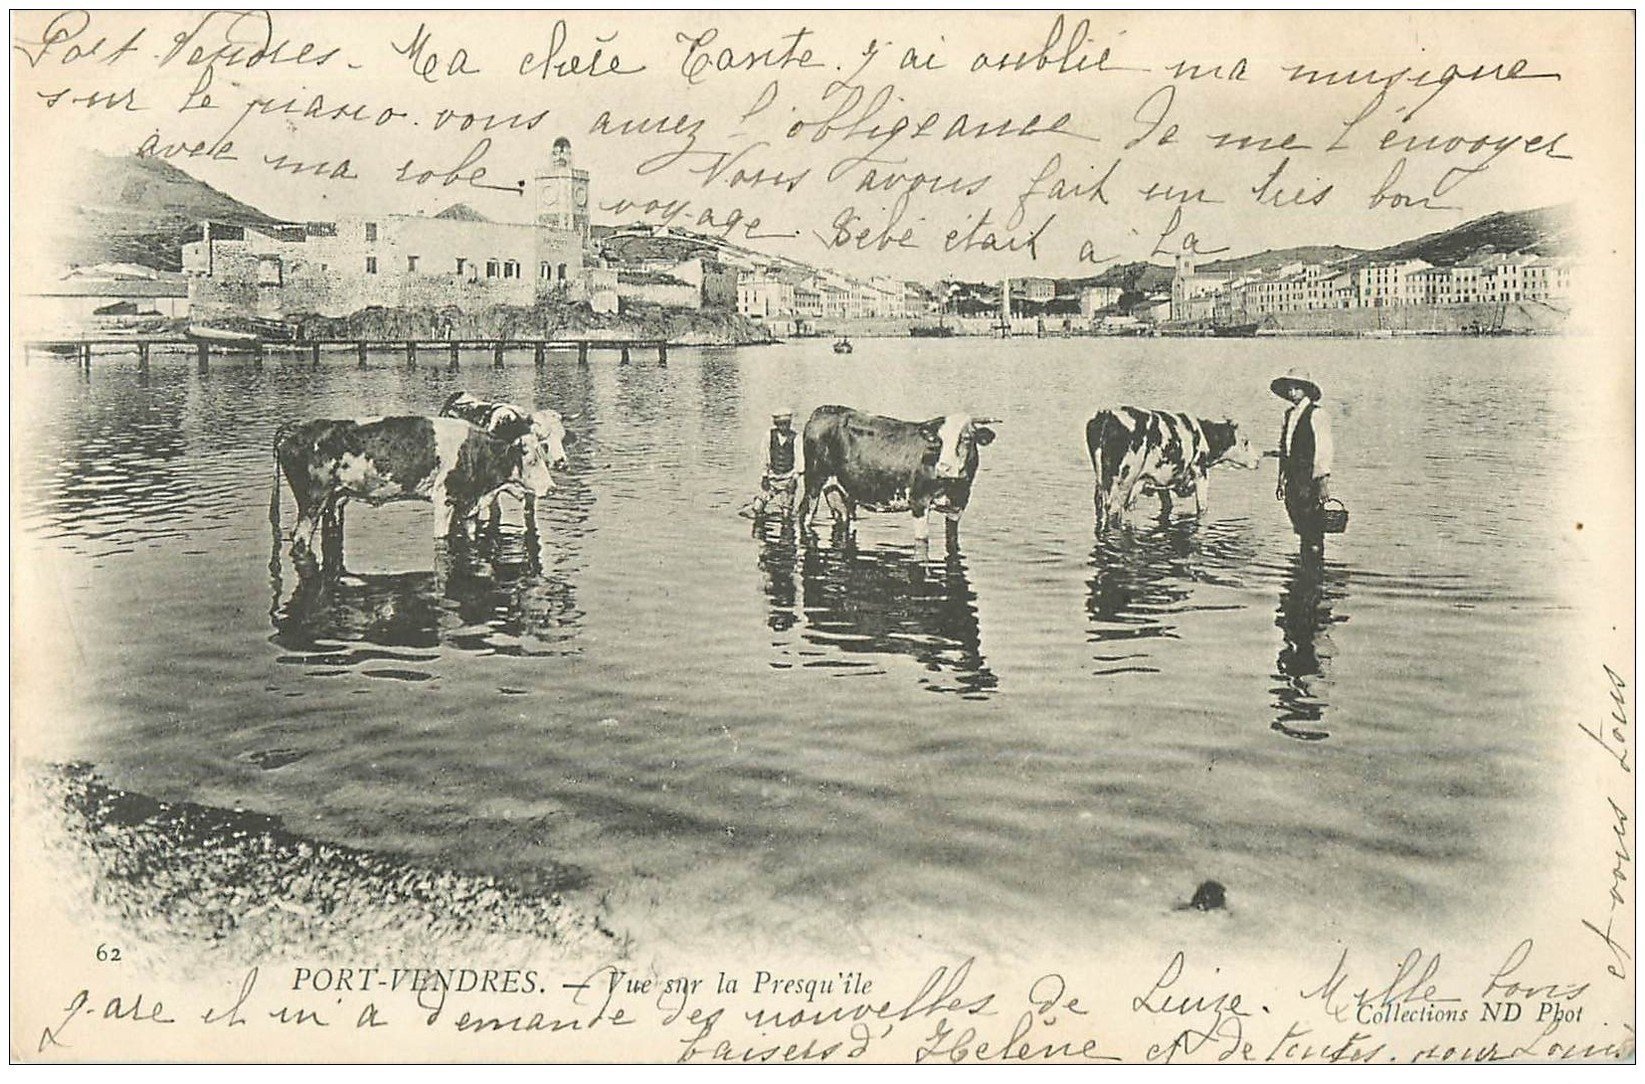 Port Vendres - Ma chère Tante. j'ai oublié ma musique
sur le piano. vous aurez l'obligeance de me l'envoyer
avec ma robe. Nous avons fait un très bon
voyage. Bébé était à la
62
PORT-VENDRES. — Vue sur la Presqu'île
Collections ND Phot
gare il m'a demandé des nouvelles de Luize. Mille bons
baisers d'Hélène et de toutes. pour Louise
et vous tous